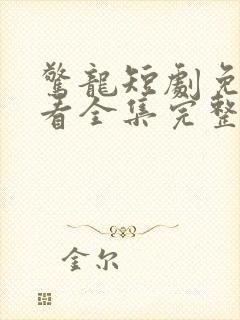 驚龍短劇免
看全集完整
金尔